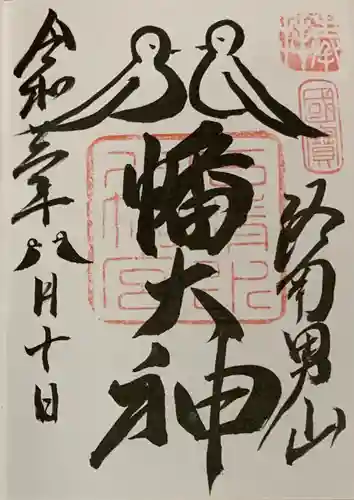 國寶
洛南男山
八幡大神
石清水
八幡宮
令和年八月十日